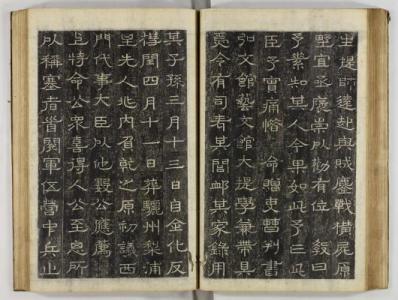 提師遠赴與賊鏖戰橫屍原
野宜亟褒崇以勸有位 教曰
予素知其人今果如此予三此
臣予實痛惜 命贈吏曹判書
弘文館藝文館大提學兼帶其
令有司考其閭卹其家錄用
其子孫三月十三日自金化反
櫬閏四月十一日葬驪州梨浦
里先人兆內負乾之原初議西
門代事大臣以他公應薦
上特命公衆喜得人公至思所
以稱塞者關軍伍營中兵止